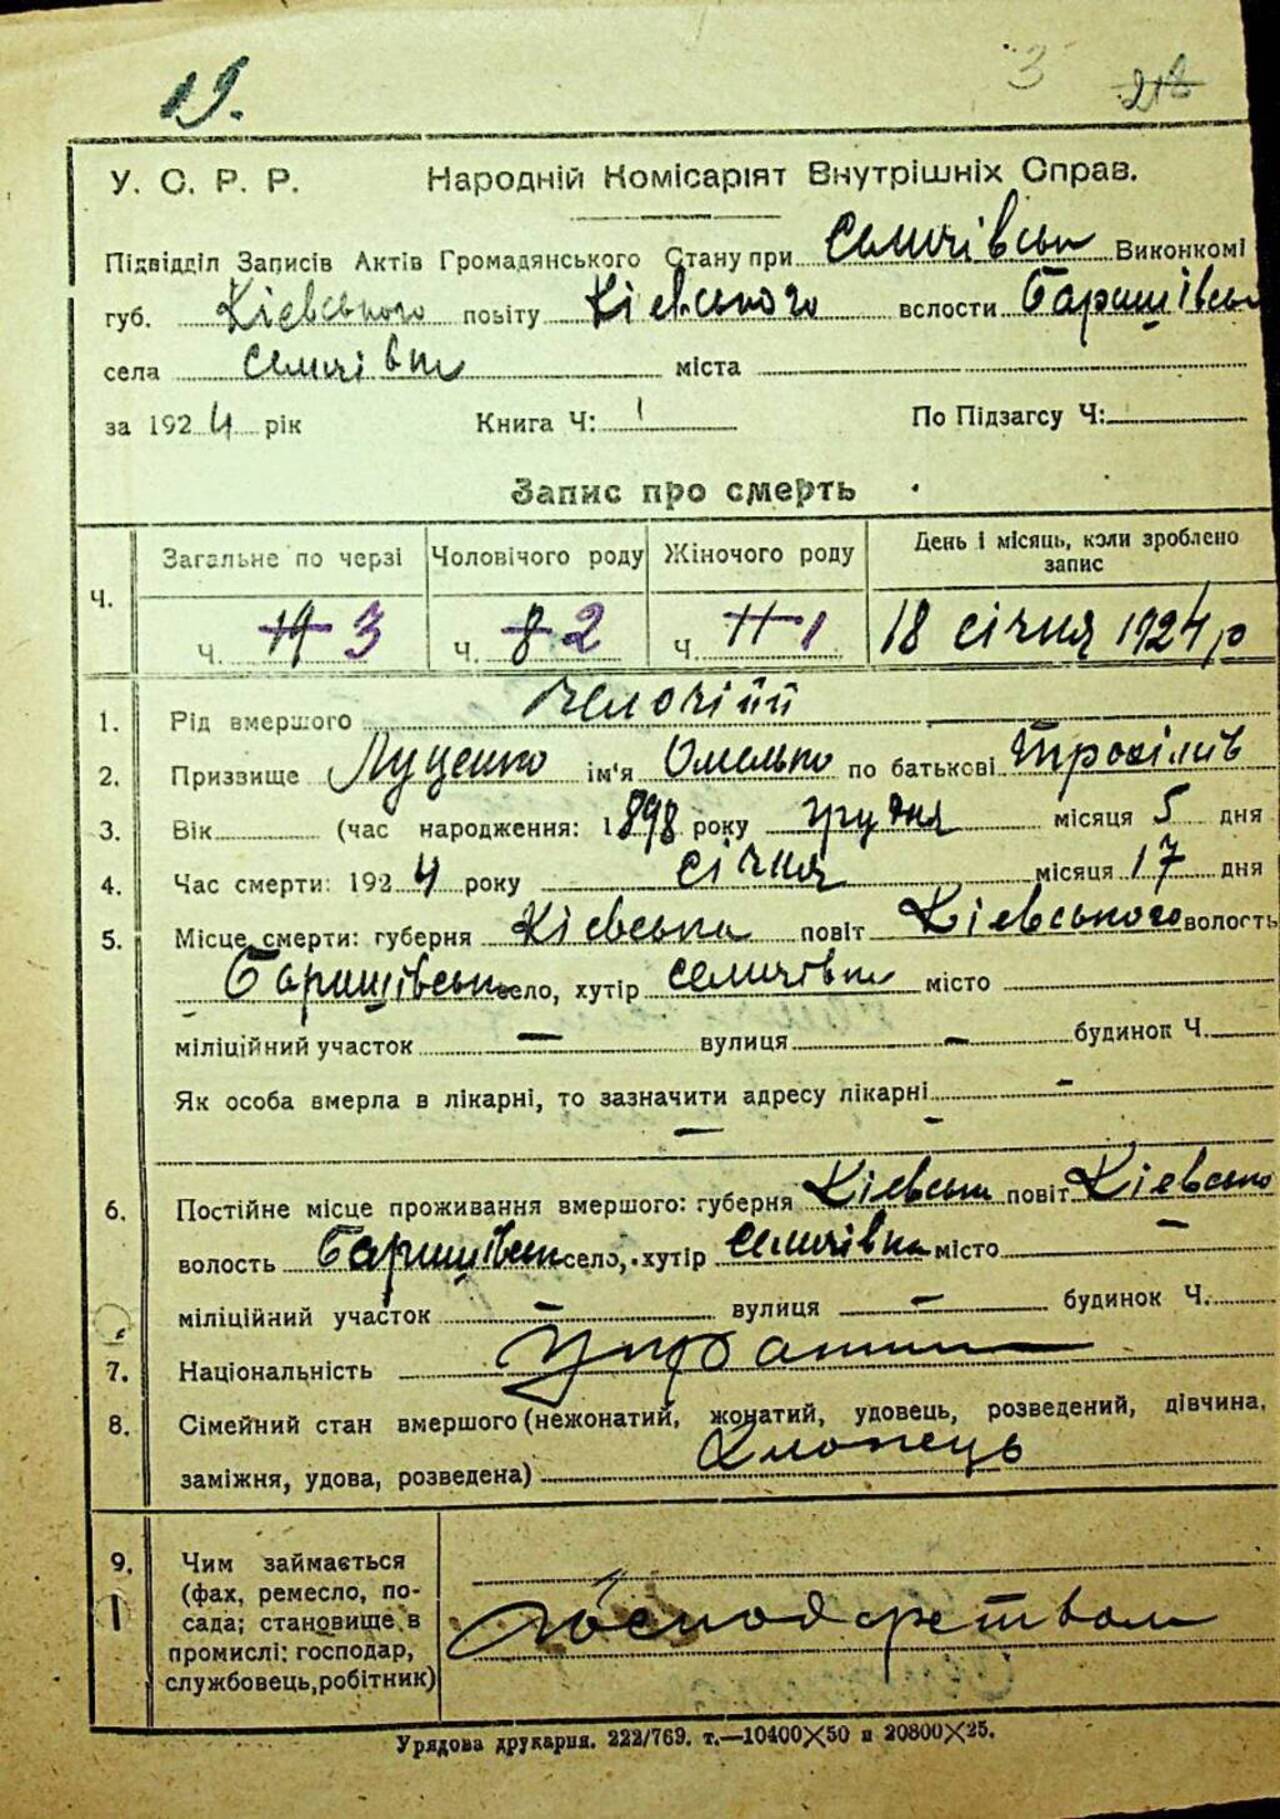 19. 3 218
У. С. Р. Р. Народній Комісаріят Внутрішніх Справ.
Підвідділ Записів Актів Громадянського Стану при Семичівськ Виконкомі
губ. Кієвського повіту Кієвського вслости Баришівськ
села Семичівки міста
за 1924 рік Книга Ч: 1 По Підзагсу Ч:
Запис про смерть
Ч. Загальне по черзі Чоловічого роду Жіночого роду День і місяць, коли зроблено запис
Ч. 19 3 Ч. 8 2 Ч. 11 1 18 січня 1924 р
1. Рід вмершого Челочій
2. Призвище Луценко ім'я Омелько по батькові
3. Вік (час народження: 1898 року грудня місяця 5 дня
4. Час смерти: 1924 року січня місяця 17 дня
5. Місце смерти: губерня Кієвська повіт Кієвського волость
Баришівськ село, хутір Семичівки місто
міліційний участок — вулиця — будинок Ч.
Як особа вмерла в лікарні, то зазначити адресу лікарні —
— —
6. Постійне місце проживання вмершого: губерня Кієвськи повіт Кієвсько
волость Баришівськ село, хутір Семичівка місто —
міліційний участок — вулиця — будинок Ч.
7. Національність
8. Сімейний стан вмершого (нежонатий, жонатий, удовець, розведений, дівчина,
заміжня, удова, розведена) Хлопець
9. Чим займається
(фах, ремесло, по-
сада; становище в
промислі: господар,
службовець, робітник)
Господарством
Урядова друкарня. 222/769. т.—10400×50 и 20800×25.